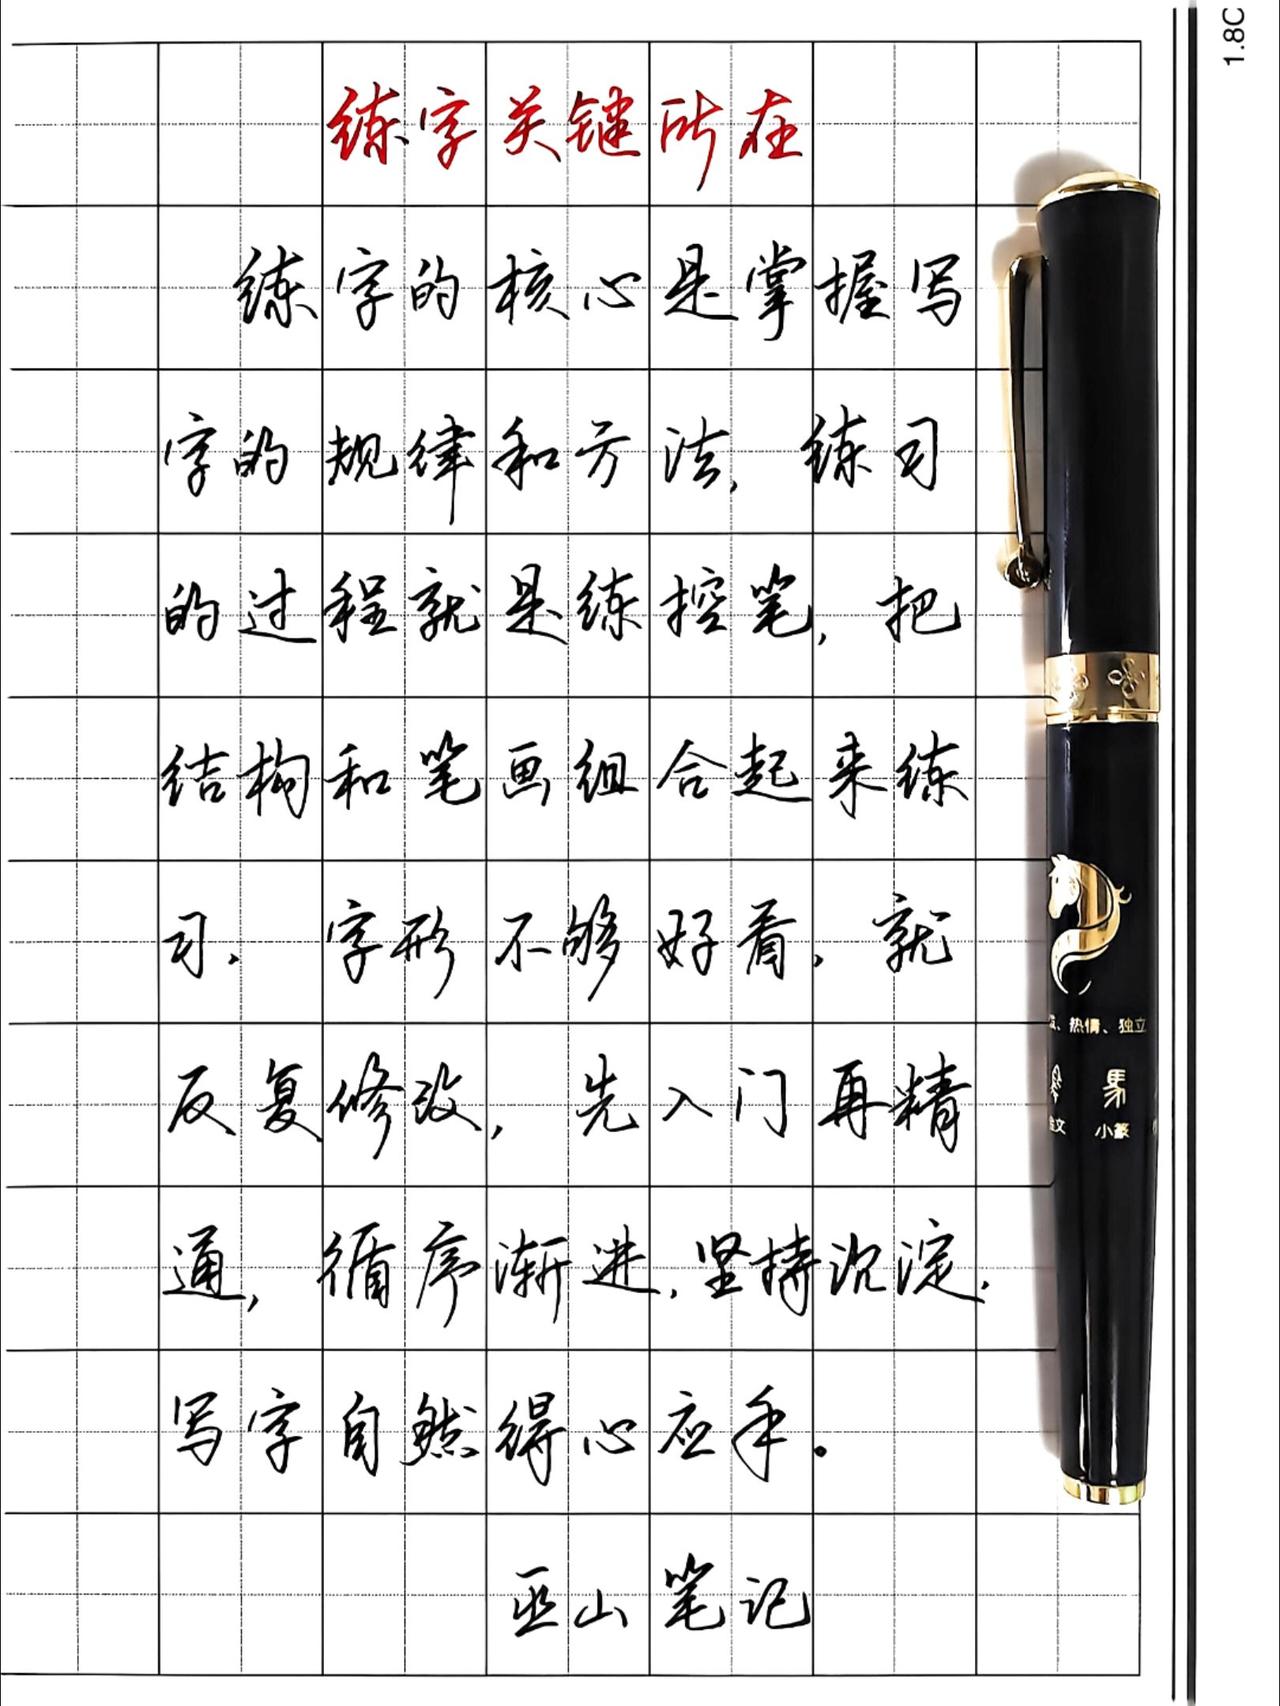 1.8C
练字关键所在
练字的核心是掌握写
字的规律和方法,练习
的过程就是练控笔,把
结构和笔画组合起来练
习.字形不够好看.就
反复修改,先入门再精
通,循序渐进.坚持沉淀.
写字自然得心应手。
巫山笔记
、热情、独立
馬
小篆